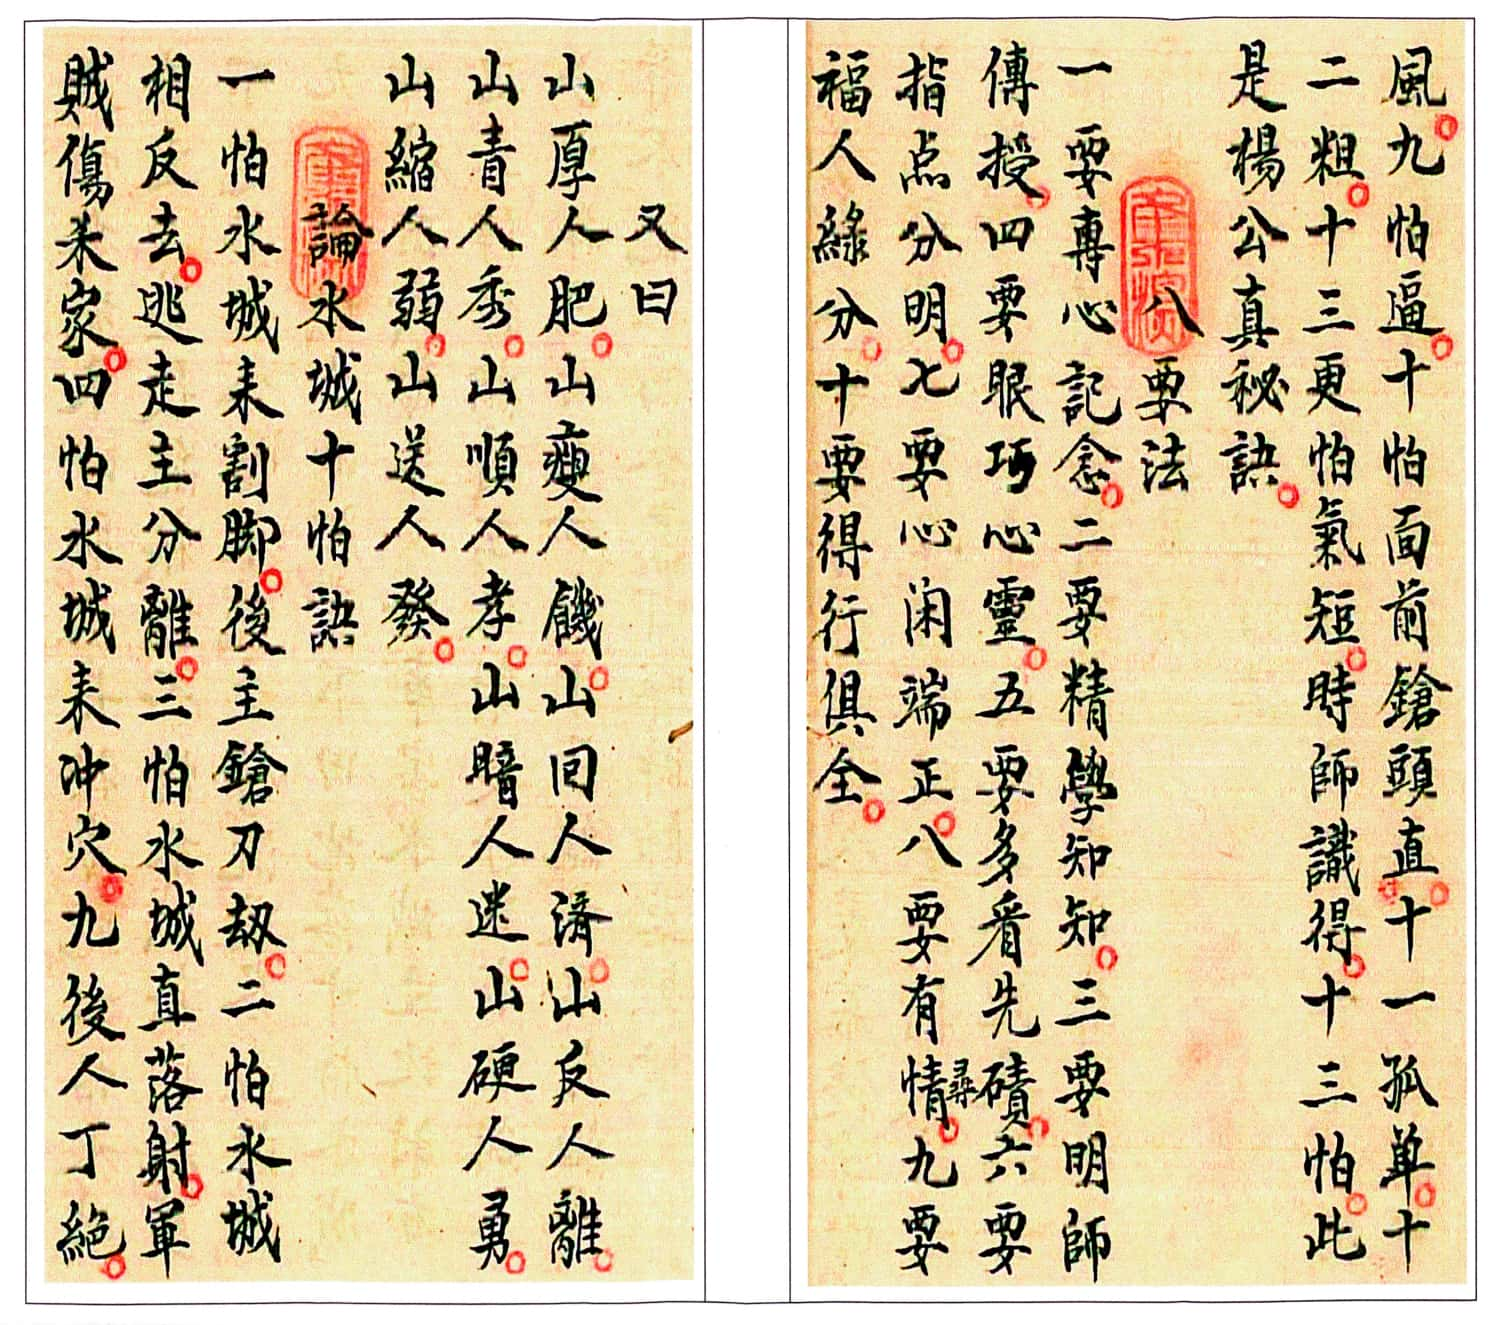 風九怕逼十怕面前鎗頭直十一孤单十
二粗十三更怕氣短時師識得十三怕此
是楊公真秘訣
八要法
一要專心記念二要精學知知三要明師
傳授四要眼巧心靈五要多看先磧六要
尋
指点分明七要心闲端正八要有情九要
福人緣分十要得行俱全
又曰
山厚人肥山瘦人饑山囘人濟山反人離
山青人秀山順人孝山暗人迷山硬人勇
山縮人弱山送人發
論水城十怕訣
一怕水城来割脚後主鎗刀刼二怕水城
相反去逃走主分離三怕水城直落射軍
賊傷来家四怕水城来冲穴九後人丁絕